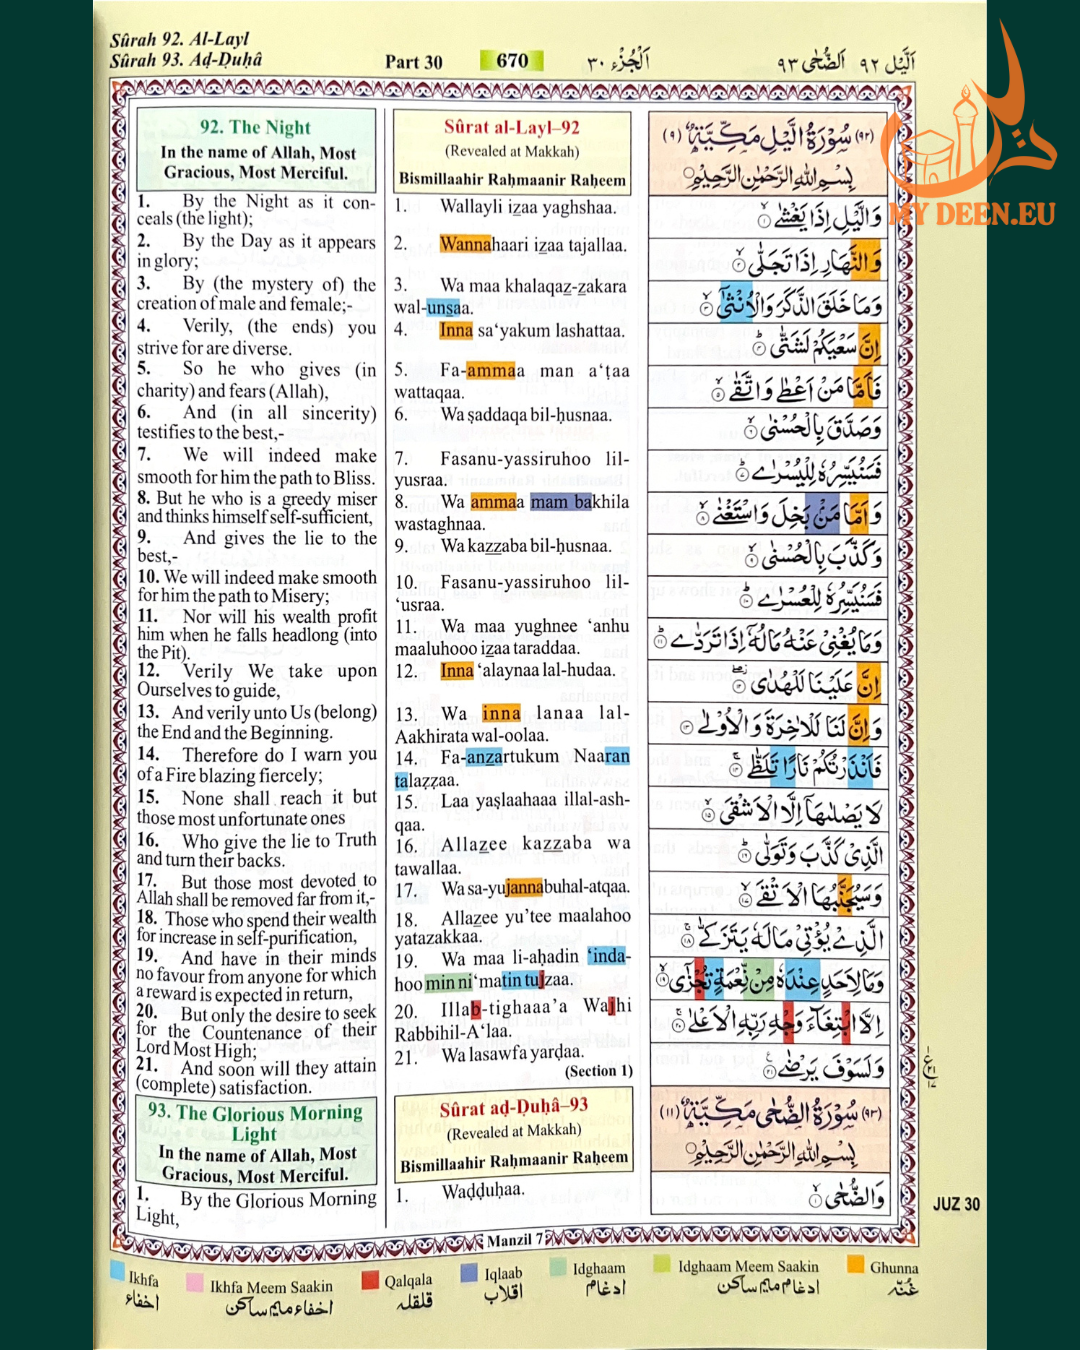 Sûrah 92. Al-Layl
Sûrah 93. Aḍ-Ḍuḥâ
Part 30
670
اَلْجُزْء ٣٠
اَلَّيْل ٩٢ اَلضُّحٰى ٩٣
MY DEEN.EU
92. The Night
In the name of Allah, Most
Gracious, Most Merciful.
1. By the Night as it con-
ceals (the light);
2. By the Day as it appears
in glory;
3. By (the mystery of) the
creation of male and female;-
4. Verily, (the ends) you
strive for are diverse.
5. So he who gives (in
charity) and fears (Allah),
6. And (in all sincerity)
testifies to the best,-
7. We will indeed make
smooth for him the path to Bliss.
8. But he who is a greedy miser
and thinks himself self-sufficient,
9. And gives the lie to the
best,-
10. We will indeed make smooth
for him the path to Misery;
11. Nor will his wealth profit
him when he falls headlong (into
the Pit).
12. Verily We take upon
Ourselves to guide,
13. And verily unto Us (belong)
the End and the Beginning.
14. Therefore do I warn you
of a Fire blazing fiercely;
15. None shall reach it but
those most unfortunate ones
16. Who give the lie to Truth
and turn their backs.
17. But those most devoted to
Allah shall be removed far from it,-
18. Those who spend their wealth
for increase in self-purification,
19. And have in their minds
no favour from anyone for which
a reward is expected in return,
20. But only the desire to seek
for the Countenance of their
Lord Most High;
21. And soon will they attain
(complete) satisfaction.
93. The Glorious Morning
Light
In the name of Allah, Most
Gracious, Most Merciful.
1. By the Glorious Morning
Light,
Sûrat al-Layl–92
(Revealed at Makkah)
Bismillaahir Raḥmaanir Raḥeem
1. Wallayli izaa yaghshaa.
2. Wannahaari izaa tajallaa.
3. Wa maa khalaqaz-zakara
wal-unsaa.
4. Inna sa‘yakum lashattaa.
5. Fa-ammaa man a‘ṭaa
wattaqaa.
6. Wa ṣaddaqa bil-ḥusnaa.
7. Fasanu-yassiruhoo lil-
yusraa.
8. Wa ammaa mam bakhila
wastaghnaa.
9. Wa kazzaba bil-ḥusnaa.
10. Fasanu-yassiruhoo lil-
‘usraa.
11. Wa maa yughnee ‘anhu
maaluhooo izaa taraddaa.
12. Inna ‘alaynaa lal-hudaa.
13. Wa inna lanaa lal-
Aakhirata wal-oolaa.
14. Fa-anzartukum Naaran
talaẓẓaa.
15. Laa yaṣlaahaaa illal-ash-
qaa.
16. Allazee kazzaba wa
tawallaa.
17. Wa sa-yujannabuhal-atqaa.
18. Allazee yu’tee maalahoo
yatazakkaa.
19. Wa maa li-aḥadin ‘inda-
hoo min ni‘matin tujzaa.
20. Illab-tighaaa’a Wajhi
Rabbihil-A‘laa.
21. Wa lasawfa yarḍaa.
(Section 1)
Sûrat aḍ-Ḍuḥâ–93
(Revealed at Makkah)
Bismillaahir Raḥmaanir Raḥeem
1. Waḍḍuḥaa.
(٩٢) سُوْرَةُ الَّيْلِ مَكِّيَّةٌ (٩)
بِسْمِ اللهِ الرَّحْمٰنِ الرَّحِيْمِ
وَالَّيْلِ اِذَا يَغْشٰى ١
وَالنَّهَارِ اِذَا تَجَلّٰى ٢
وَمَا خَلَقَ الذَّكَرَ وَالْاُنْثٰٓى ٣
اِنَّ سَعْيَكُمْ لَشَتّٰى ٤
فَاَمَّا مَنْ اَعْطٰى وَاتَّقٰى ٥
وَصَدَّقَ بِالْحُسْنٰى ٦
فَسَنُيَسِّرُهٗ لِلْيُسْرٰى ٧
وَاَمَّا مَنْۢ بَخِلَ وَاسْتَغْنٰى ٨
وَكَذَّبَ بِالْحُسْنٰى ٩
فَسَنُيَسِّرُهٗ لِلْعُسْرٰى ١٠
وَمَا يُغْنِيْ عَنْهُ مَالُهٗٓ اِذَا تَرَدّٰى ١١
اِنَّ عَلَيْنَا لَلْهُدٰى ١٢
وَاِنَّ لَنَا لَلْاٰخِرَةَ وَالْاُوْلٰى ١٣
فَاَنْذَرْتُكُمْ نَارًا تَلَظّٰى ١٤
لَا يَصْلٰىهَآ اِلَّا الْاَشْقَى ١٥
الَّذِيْ كَذَّبَ وَتَوَلّٰى ١٦
وَسَيُجَنَّبُهَا الْاَتْقَى ١٧
الَّذِيْ يُؤْتِيْ مَالَهٗ يَتَزَكّٰى ١٨
وَمَا لِاَحَدٍ عِنْدَهٗ مِنْ نِّعْمَةٍ تُجْزٰٓى ١٩
اِلَّا ابْتِغَآءَ وَجْهِ رَبِّهِ الْاَعْلٰى ٢٠
وَلَسَوْفَ يَرْضٰى ٢١
(٩٣) سُوْرَةُ الضُّحٰى مَكِّيَّةٌ (١١)
بِسْمِ اللهِ الرَّحْمٰنِ الرَّحِيْمِ
وَالضُّحٰى ١
JUZ 30
Manzil 7
Ikhfa
اخفاء
Ikhfa Meem Saakin
اخفاء ميم ساكن
Qalqala
قلقله
Iqlaab
اقلاب
Idghaam
ادغام
Idghaam Meem Saakin
ادغام ميم ساكن
Ghunna
غنّه